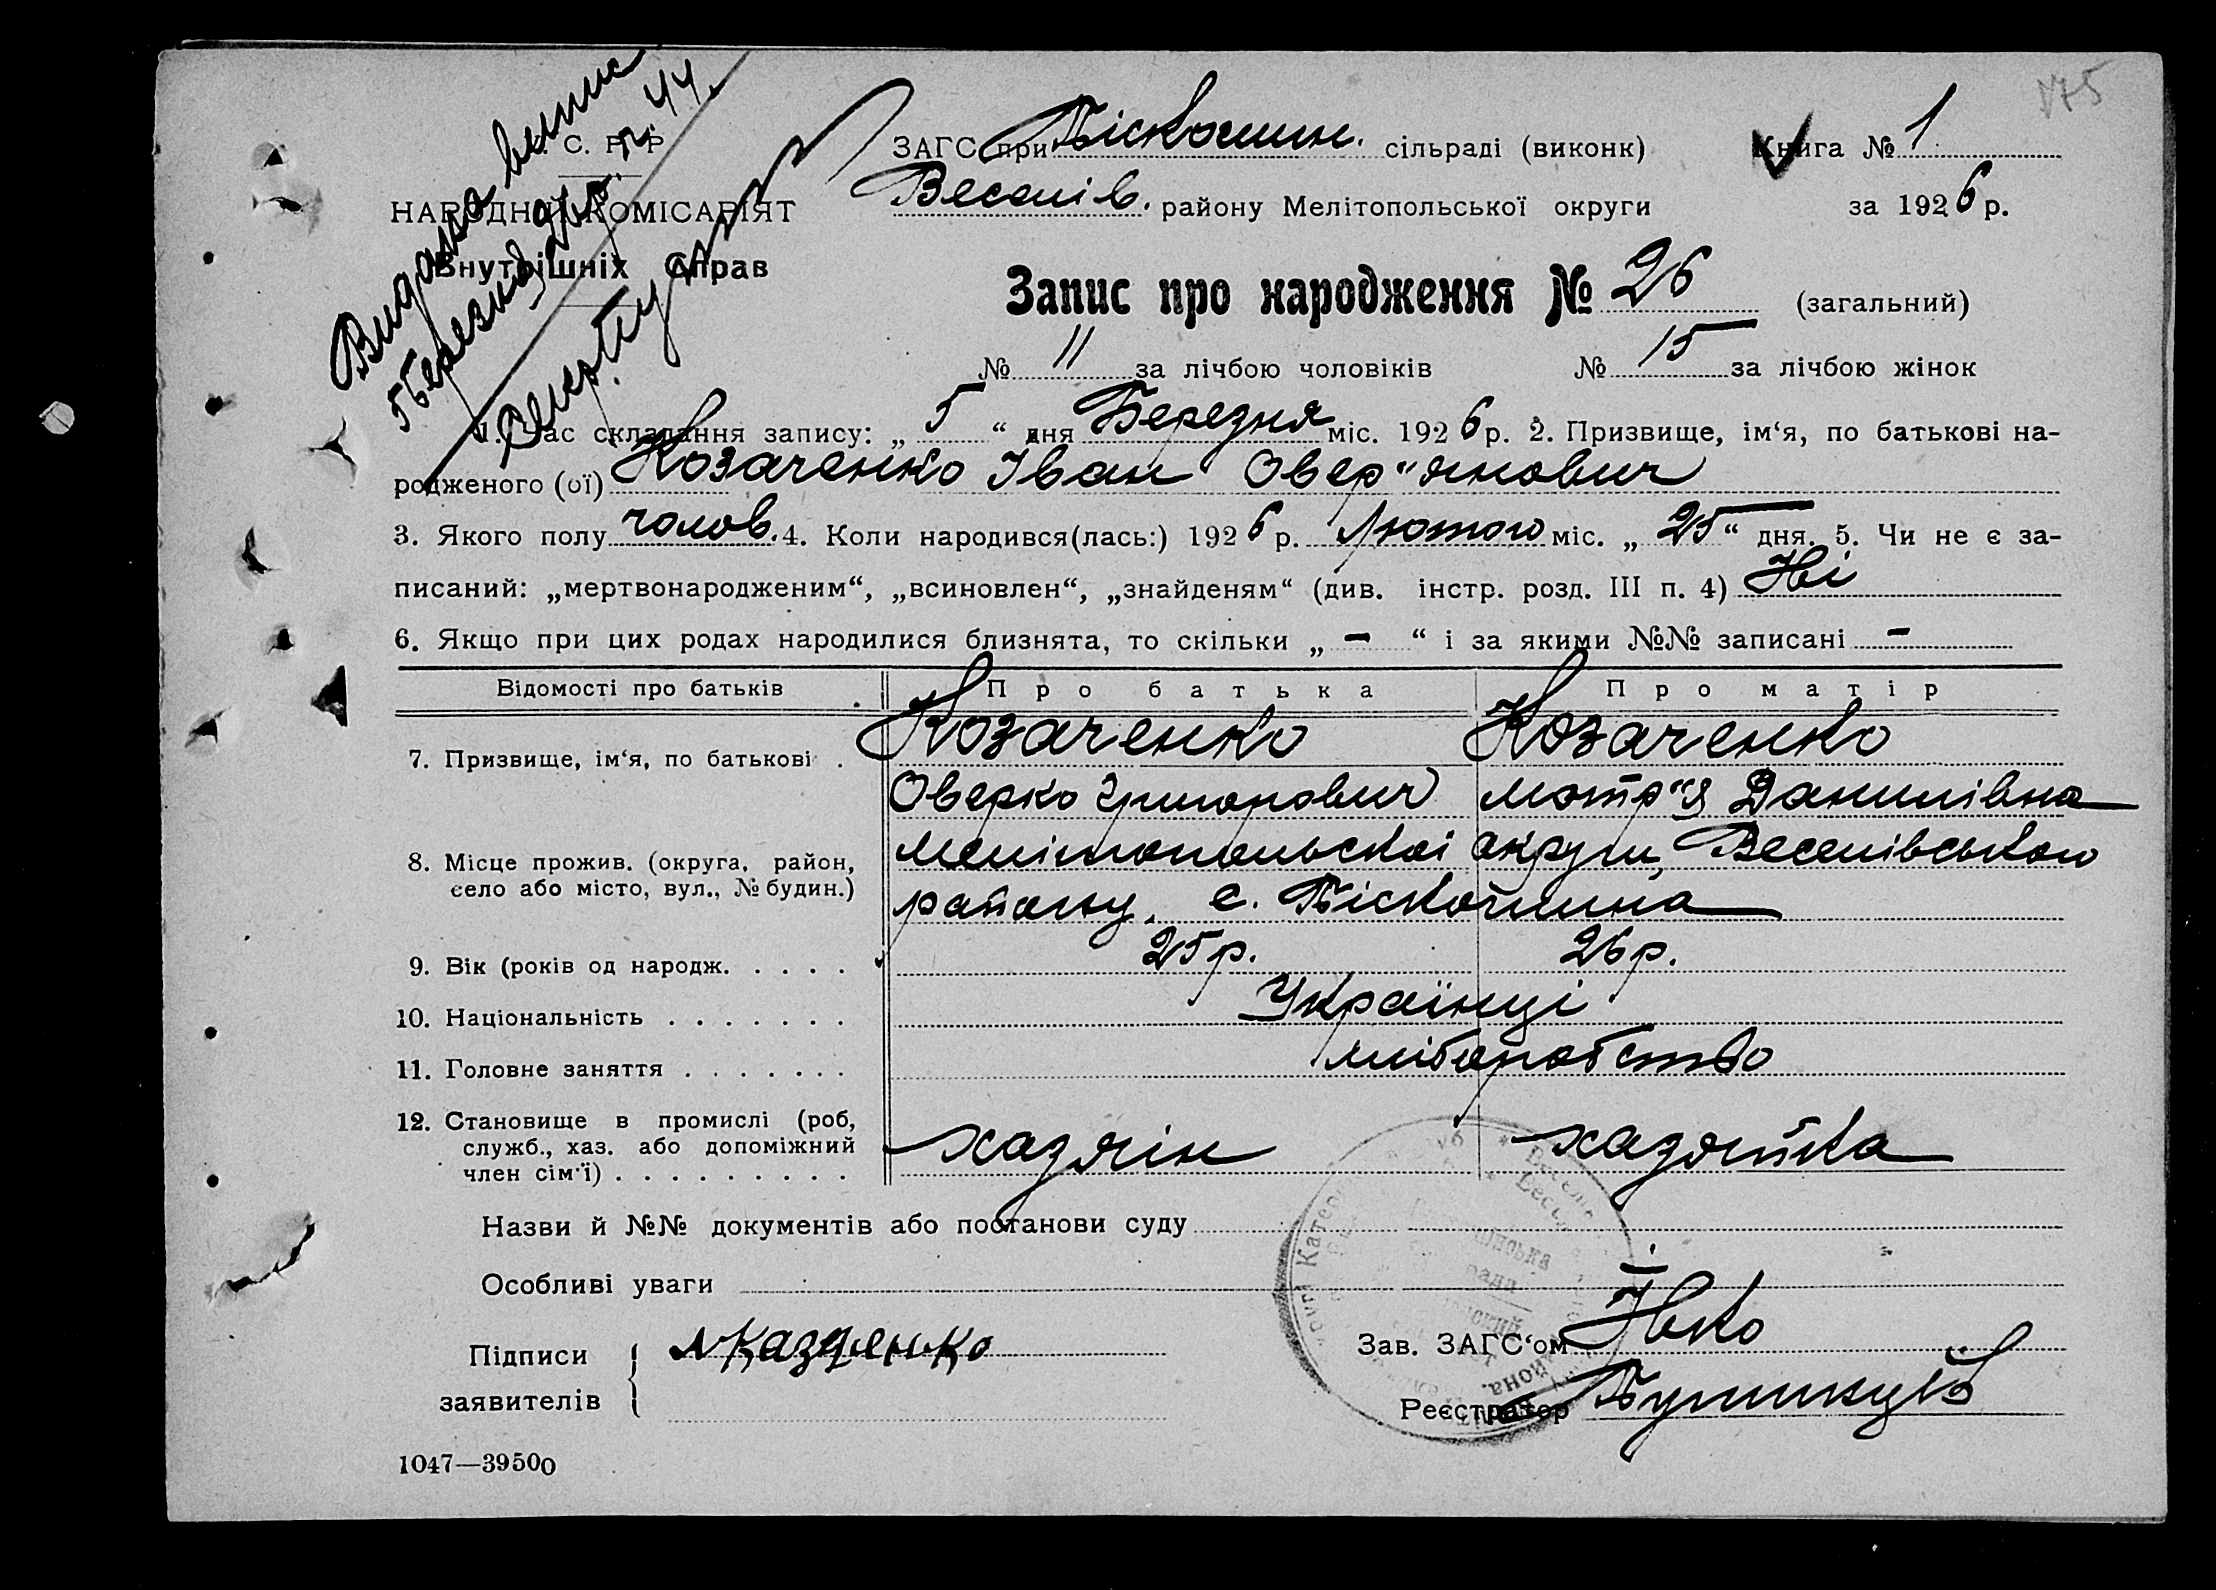 175
Видана випис
5 березня 26 р. п. 44
У. С. Р. Р.
НАРОДНІЙ КОМІСАРІЯТ
Внутрішніх Справ
ЗАГС при Піскошин. сільраді (виконк)
Книга № 1
Веселів. району Мелітопольської округи
за 1926 р.
Запис про народження № 26 (загальний)
№ 11 за лічбою чоловіків № 15 за лічбою жінок
1. Час складання запису: „5“ дня Березня міс. 1926 р. 2. Призвище, ім‘я, по батькові на-
родженого (ої) Козаченко Іван Овер"янович
3. Якого полу чолов. 4. Коли народився(лась:) 1926 р. Лютого міс. „25“ дня. 5. Чи не є за-
писаний: „мертвонародженим“, „всиновлен“, „знайденям“ (див. інстр. розд. III п. 4) Ні
6. Якщо при цих родах народилися близнята, то скільки „-“ і за якими №№ записані -
Відомості про батьків Про батька Про матір
7. Призвище, ім‘я, по батькові . Козаченко Козаченко
Оверко Григорович Мотр"я Данилівна
8. Місце прожив. (округа, район, село або місто, вул., № будин.) Мелітопольскої округи, Веселівського
району, с. Піскошина
9. Вік (років од народж. . . . . 25 р. 26 р.
10. Національність . . . . . . . Українці
11. Головне заняття . . . . . . . хліборобство
12. Становище в промислі (роб,
служб., хаз. або допоміжний
член сім‘ї) . . . . . . . . . хазяін хазяйка
Назви й №№ документів або постанови суду
Особливі уваги
Підписи
заявителів
Казаченко
Зав. ЗАГС‘ом
Реєстратор
1047—39500